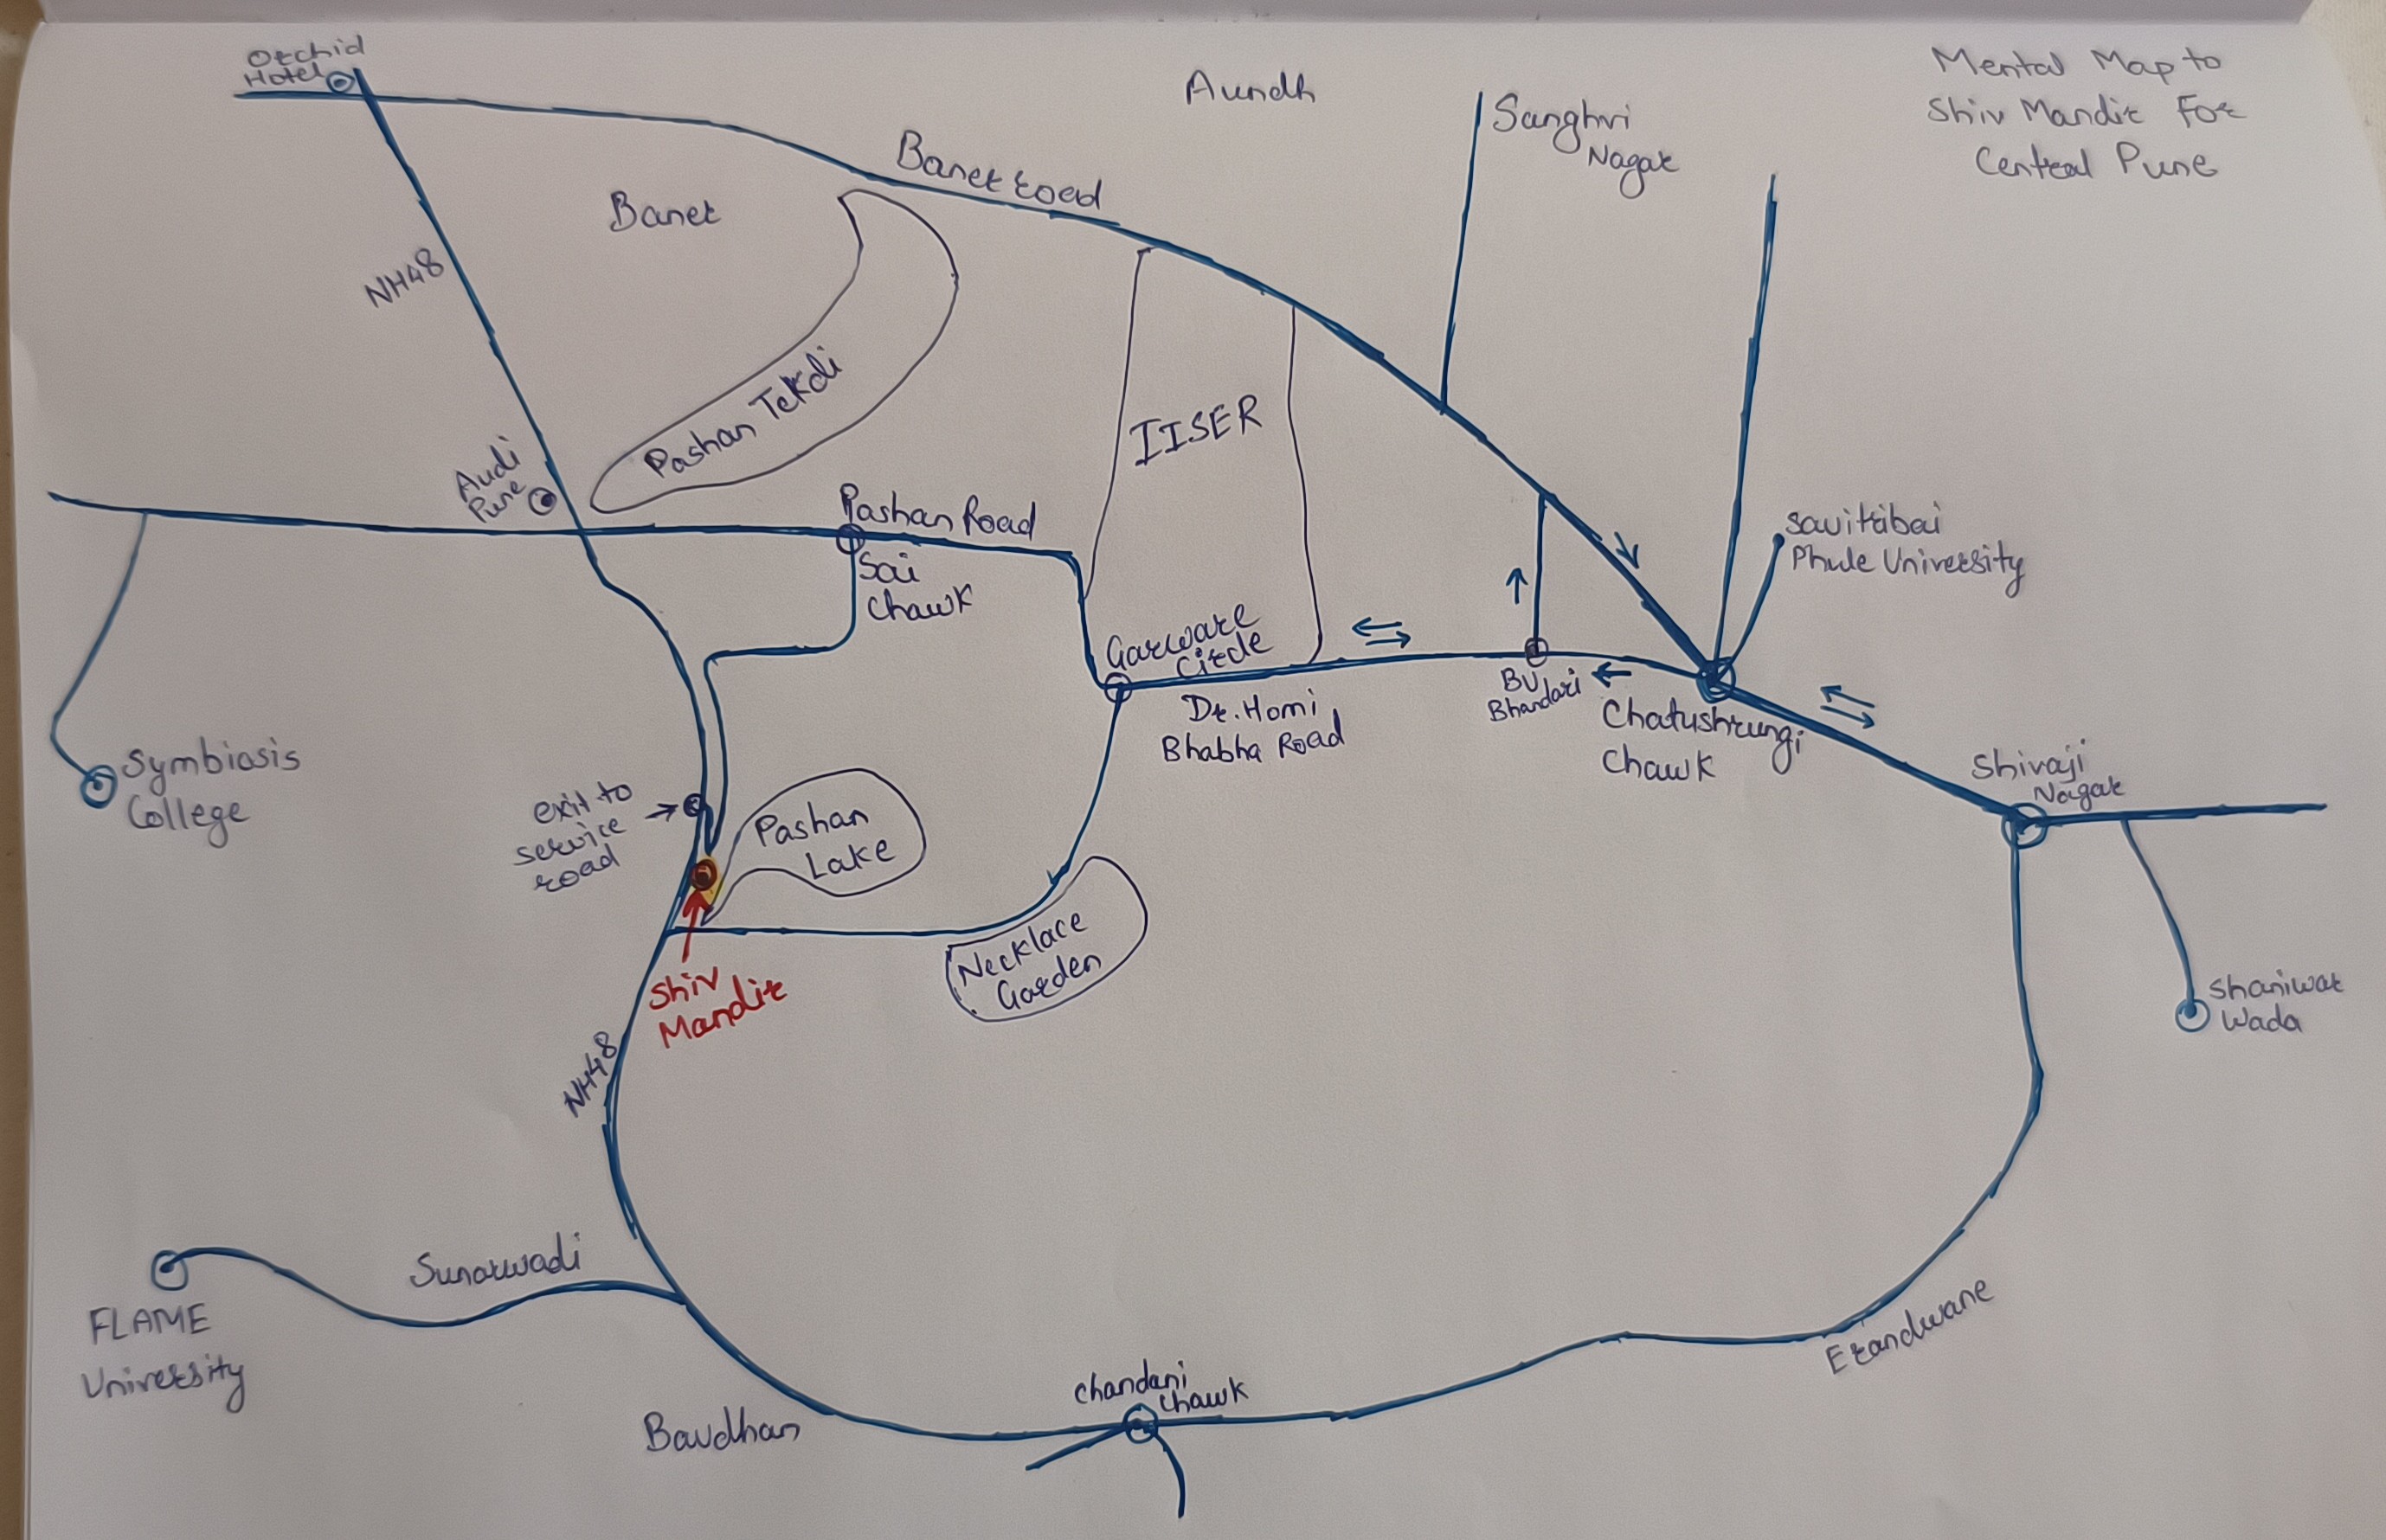 Mental Map to
Shiv Mandir For
Central Pune
Orchid
Hotel
Aundh
Sanghvi
Nagar
Baner road
Baner
NH48
Pashan Tekdi
IISER
Audi
Pune
Pashan Road
Sai
Chawk
Savitribai
Phule University
Garware
Circle
Dr. Homi
Bhabha Road
BU
Bhandari
Chatushrungi
Chawk
Shivaji
Nagar
Symbiosis
College
exit to
service
road
Pashan
Lake
Shiv
Mandir
Necklace
Garden
Shaniwar
Wada
NH48
Sunarwadi
FLAME
University
Bavdhan
Chandani
Chawk
Erandwane